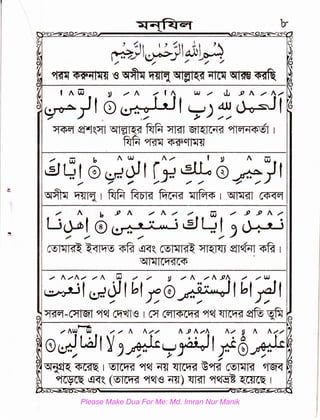 মনযিল ৮
بِسْمِ اللهِ الرَّحْمٰنِ الرَّحِيْمِ
পরম করুণাময় ও অসীম দয়ালু আল্লাহর নামে আরম্ভ করছি
اَلْحَمْدُ لِلّٰهِ رَبِّ الْعٰلَمِيْنَ ۝ الرَّحْمٰنِ
সকল প্রশংসা আল্লাহর যিনি সারা জাহানের পালনকর্তা।
যিনি পরম করুণাময়
الرَّحِيْمِ ۝ مٰلِكِ يَوْمِ الدِّيْنِ ۝ اِيَّاكَ
অসীম দয়ালু। যিনি বিচার দিনের মালিক। আমরা কেবল
نَعْبُدُ وَاِيَّاكَ نَسْتَعِيْنُ ۝ اِهْدِنَا
তোমারই ইবাদত করি এবং তোমারই সাহায্য প্রার্থনা করি।
আমাদেরকে
الصِّرَاطَ الْمُسْتَقِيْمَ ۝ صِرَاطَ الَّذِيْنَ
সরল-সোজা পথ দেখাও। সে লোকদের পথ যাদের প্রতি তুমি
اَنْعَمْتَ عَلَيْهِمْ غَيْرِ الْمَغْضُوْبِ عَلَيْهِمْ وَلَا الضَّآلِّيْنَ ۝
অনুগ্রহ করেছ। তাদের পথ নয় যাদের উপর তোমার গজব
পড়েছে এবং (তাদের পথও নয়) যারা পথভ্রষ্ট হয়েছে।
Please Make Dua For Me: Md. Imran Nur Manik